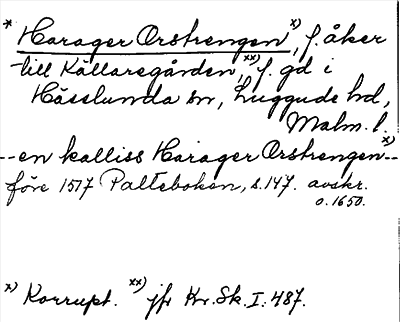 * Harager Orstrengen x), f. åker
till Källaregården, xx) f. gd i
Hässlunda sn, Luggude hd,
Malm. l.
--en kalliss Harager Orstrengen x)--
före 1517 Palteboken, s. 147. avskr.
o. 1650.
x) Korrupt. xx) jfr Kr. Sk. I. 487.